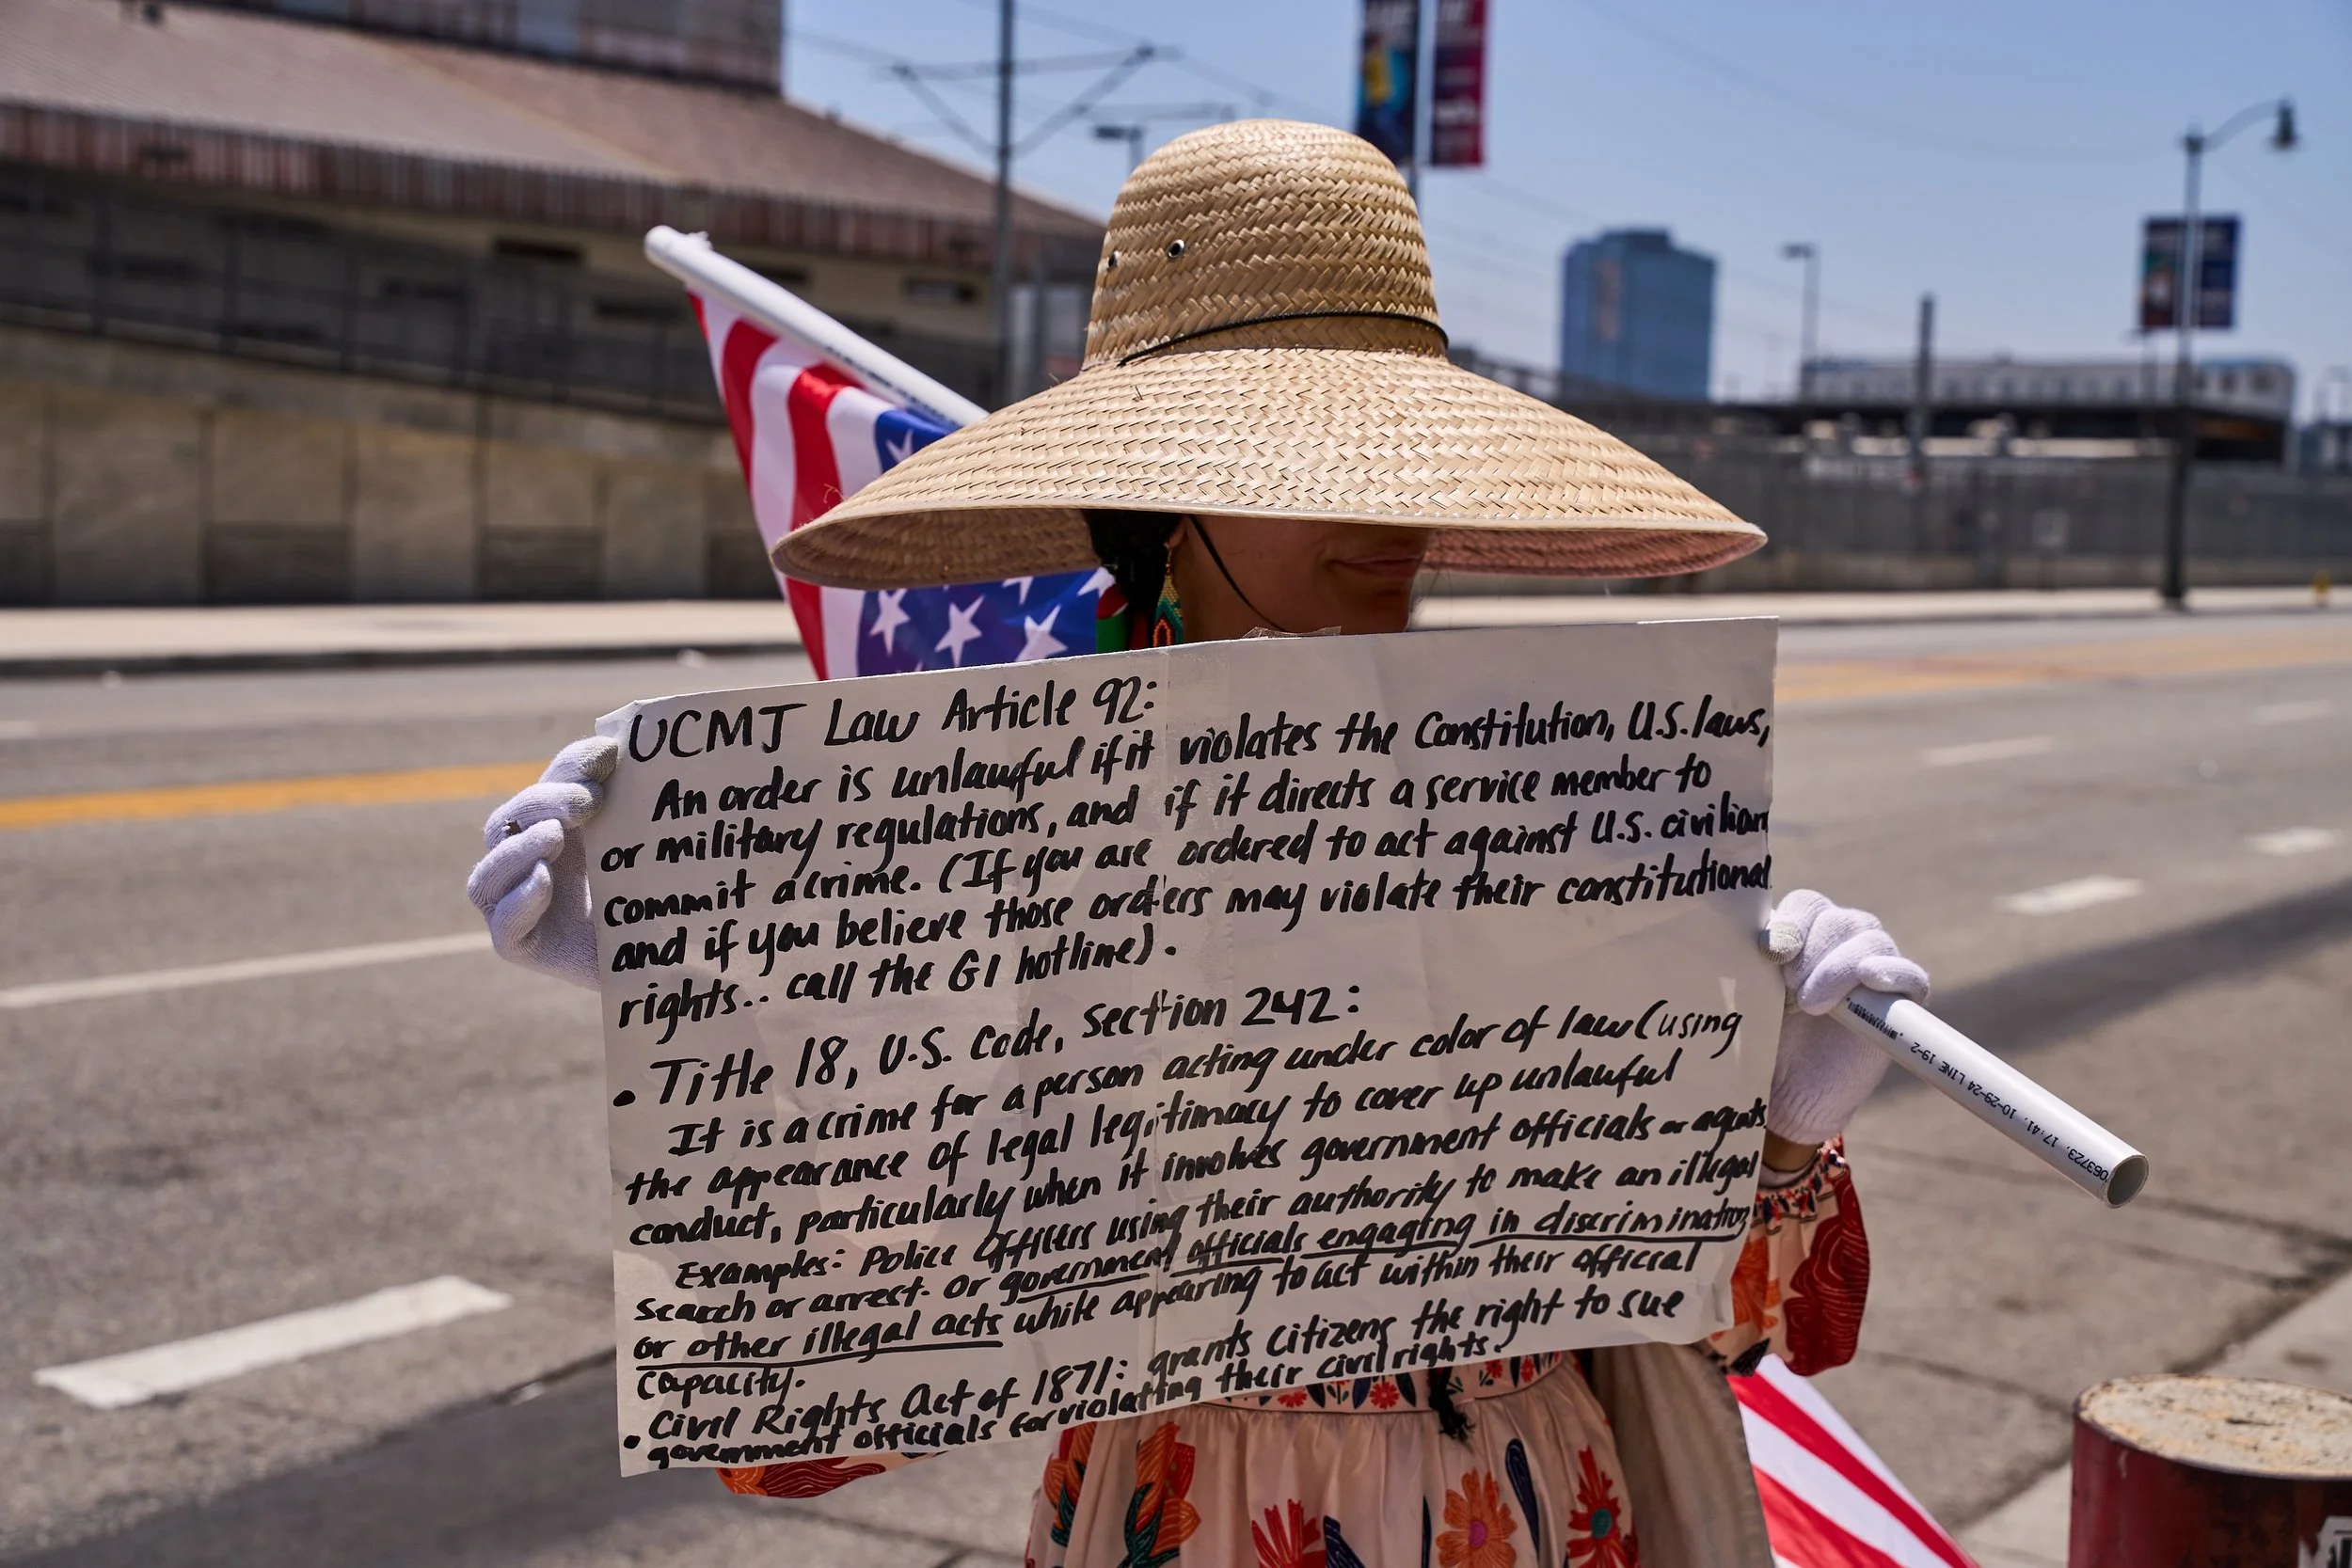 UCMJ Law Article 92:
An order is unlawful if it violates the Constitution, U.S. laws,
or military regulations, and if it directs a service member to
commit a crime. (If you are ordered to act against U.S. civilians
and if you believe those orders may violate their constitutional
rights.. call the GI hotline).
• Title 18, U.S. Code, Section 242:
It is a crime for a person acting under color of law (using
the appearance of legal legitimacy to cover up unlawful
conduct, particularly when it involves government officials or agents,
Examples: Police Officers using their authority to make an illegal
search or arrest. Or government officials engaging in discrimination
or other illegal acts while appearing to act within their official
capacity.
• Civil Rights Act of 1871: grants citizens the right to sue
government officials for violating their civil rights.
063723. 17:41. 10-29-24 LINE 19-2